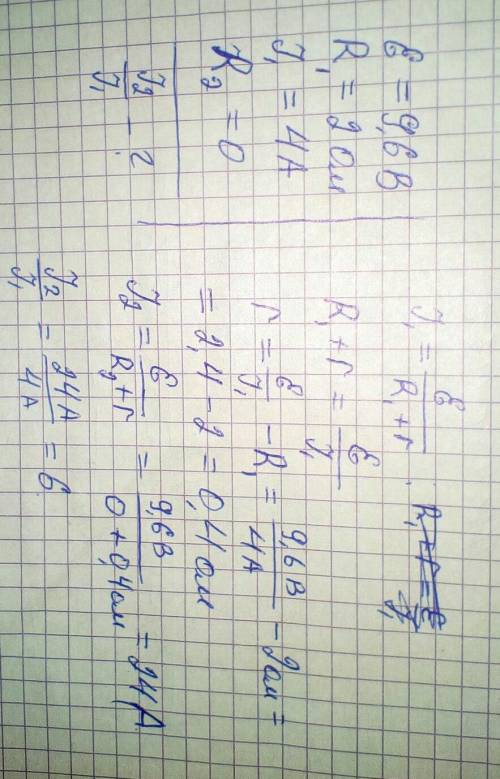 ℰ = 9,6 В
R₁ = 2 Ом
J₁ = 4 А
R₂ = 0
J₂/J₁ - ?
J₁ = ℰ/(R₁ + r).
R₁ + r = ℰ/J₁
R₁ + r = ℰ/J₁
r = ℰ/J₁ - R₁ = 9,6 В/4 А - 2 Ом =
= 2,4 - 2 = 0,4 Ом
J₂ = ℰ/(R₂ + r) = 9,6 В/(0 + 0,4 Ом) = 24 А
J₂/J₁ = 24 А/4 А = 6.